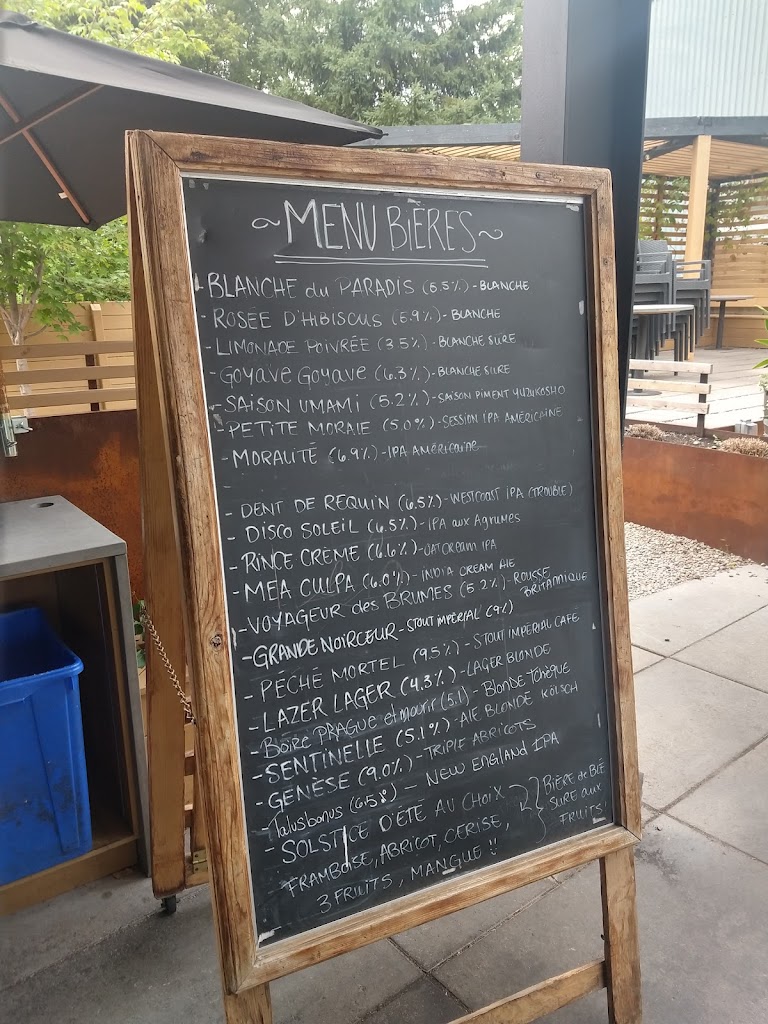 ~MENU BIÈRES~
- BLANCHE du PARADIS (5.5%) - BLANCHE
- ROSÉE D'HIBISCUS (5.9%) - BLANCHE
- LIMONADE POIVRÉE (3.5%) - BLANCHE SÛRE
- GOYAVE GOYAVE (6.3%) - BLANCHE SURE
- SAISON UMAMI (5.2%) - SAISON PIMENT YUZUKOSHO
- PETITE MORALE (5.0%) - SESSION IPA AMÉRICAINE
- MORALITÉ (6.9%) - IPA AMÉRICAINE
- DENT DE REQUIN (6.5%) - WESTCOAST IPA (TROUBLE)
- DISCO SOLEIL (6.5%) - IPA aux AGRUMES
- RINCE CRÈME (6.6%) - OAT CREAM IPA
- MEA CULPA (6.0%) - INDIA CREAM ALE
- VOYAGEUR des BRUMES (5.2%) - ROUSSE BRITANNIQUE
- GRANDE NOIRCEUR - STOUT IMPÉRIAL (9%)
- PÉCHÉ MORTEL (9.5%) - STOUT IMPÉRIAL CAFÉ
- LAZER LAGER (4.3%) - LAGER BLONDE
- BOIRE PRAGUE et mourir (5.1) - BLONDE TCHÈQUE
- SENTINELLE (5.1%) - ALE BLONDE KÖLSCH
- GENÈSE (9.0%) - TRIPLE ABRICOTS
- Talusbonus (6.5%) - NEW ENGLAND IPA
- SOLSTICE D'ÉTÉ AU CHOIX } BIÈRE de BLÉ
FRAMBOISE, ABRICOT, CERISE, SURE aux
3 FRUITS, MANGUE !! FRUITS!